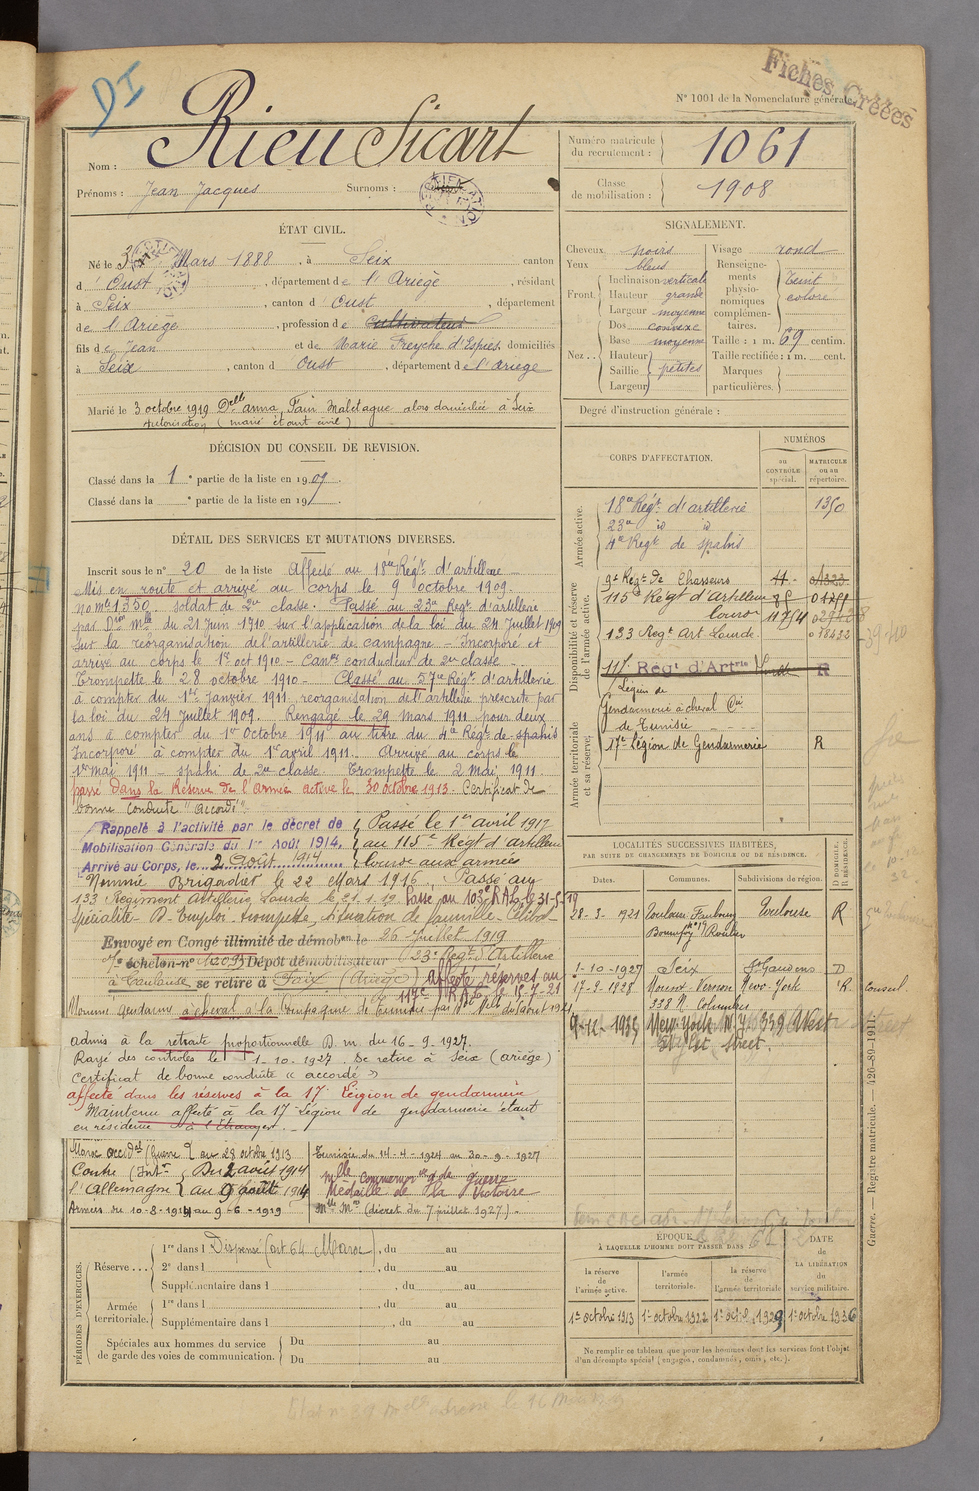 DI
Fiches Créées
N° 1001 de la Nomenclature générale.
Nom : Rieu Sicart
Prénoms : Jean Jacques Surnoms :
Numéro matricule du recrutement : 1061
Classe de mobilisation : 1908
ÉTAT CIVIL.
Né le 3 Mars 1888, à Seix canton
d' Oust, département de l'Ariège, résidant
à Seix, canton d' Oust, département
de l'Ariège, profession de Cultivateur
fils de Jean et de Marie Freyche d'Espies domiciliés
à Seix, canton d Oust, département de l'Ariège
Marié le 3 octobre 1919 Delle anna, Faur Maletague alors domiciliée à Seix
Autorisation (marié étant civil)
SIGNALEMENT.
Cheveux noirs
Yeux bleus
Front Inclinaison verticale
Hauteur grande
Largeur moyenne
Nez Dos convexe
Base moyenne
Hauteur
Saillie petites
Largeur
Visage rond
Renseignements physionomiques complémentaires. Teint coloré
Taille : 1 m. 69 centim.
Taille rectifiée : 1 m. cent.
Marques particulières.
Degré d'instruction générale :
DÉCISION DU CONSEIL DE REVISION.
Classé dans la 1e partie de la liste en 1909.
Classé dans la e partie de la liste en 19
DÉTAIL DES SERVICES ET MUTATIONS DIVERSES.
Inscrit sous le n° 20 de la liste Affecté au 18e Régt d'artillerie
Mis en route et arrivé au corps le 9 octobre 1909.
no mle 1350. soldat de 2e classe. Passé au 23e Regt d'artillerie
par Don Mlle du 21 Juin 1910 sur l'application de la loi du 24 Juillet 1909
sur la réorganisation de l'artillerie de campagne – Incorporé et
arrivé au corps le 1er oct 1910 – Canre conducteur de 2e classe
Trompette le 28 octobre 1910 – Classé au 57e Régt d'artillerie
à compter du 1er Janvier 1911, réorganisation de l'artillerie prescrite par
la loi du 24 Juillet 1909. Rengagé le 29 Mars 1911 pour deux
ans à compter du 1er Octobre 1911 au titre du 4e Régt de spahis
Incorporé à compter du 1er avril 1911. Arrivé au corps le
1er mai 1911 – spahi de 2e classe Trompette le 2 Mai 1911.
passé dans la Réserve de l'Armée active le 30 octobre 1913. Certificat de
bonne conduite "accordé"
Rappelé à l'activité par le décret de
Mobilisation Générale du 1er Août 1914.
Arrivé au Corps, le 2 Août 1914
Passé le 1er avril 1917
au 115e Régt d'artillerie
lourde aux armées
Nommé Brigadier le 22 Mars 1916, Passé au
133 Regiment Artillerie Lourde le 21.1.19 Passé au 103e R.A.L. le 31-5-19
Spécialité – D. Emploi – trompette, situation de famille – Célibat.
Envoyé en Congé illimité de démobon le 26 Juillet 1919
échelon n° Dépôt démobilisateur 23e Regt d'Artillerie
à Toulouse se retire à Seix (Ariège) affecté réserves au
117e R.A.L. le 15-7-21
Nommé gendarme à cheval à la Compagnie de Tunisie par
admis à la retraite proportionnelle D. m du 16-9-1927.
Rayé des contrôles le 1-10-1927. Se retire à Seix (ariège)
Certificat de bonne conduite « accordé »
affecté dans les réserves à la 17e Légion de gendarmerie
Maintenu affecté à la 17e Légion de gendarmerie étant
en résidence à l'étranger.
Maroc occidal (Guerre) au 28 octobre 1913
Contre l'Allemagne (Intr) Du 2 août 1914
au 9 août 1914
Armées du 10-8-1914 au 9-6-1919
Tunisie du 14-4-1924 au 30-9-1927
Mlle commemorve gde guerre
Médaille de la Victoire
Mlle Mre (décret du 7 juillet 1927).
CORPS D'AFFECTATION.
NUMÉROS
au CONTRÔLE spécial.
MATRICULE ou au répertoire.
Armée active.
18e Régt d'artillerie 1350
23e id id
4e Regt de spahis
Disponibilité et réserve de l'armée active.
9e Régt de Chasseurs
115e Régt d'Artillerie
lourde
133 Regt Art Lourde
117 Régt d'Artie Lourde R
Armée territoriale et sa réserve.
Légion de
Gendarmerie à cheval Cie
de Tunisie
17e Légion de Gendarmerie R
LOCALITÉS SUCCESSIVES HABITÉES,
PAR SUITE DE CHANGEMENTS DE DOMICILE OU DE RÉSIDENCE.
Dates. Communes. Subdivisions de région. D DOMICILE, R RÉSIDENCE.
28-3-1921 Toulouse Faubourg Bonnefoy Toulouse R
1-10-1927 Seix St Gaudens D
17-9-1928 Mount-Vernon New-York R Consul.
338 N. Columbus
9-12-1935 New-York N.Y. 339 West
Street.
ÉPOQUE
À LAQUELLE L'HOMME DOIT PASSER DANS
la réserve de l'armée active.
l'armée territoriale.
la réserve de l'armée territoriale
DATE de LA LIBÉRATION du service militaire.
1er octobre 1913 1er octobre 1922 1er octob. 1929 1er octobre 1936
Ne remplir ce tableau que pour les hommes dont les services font l'objet
d'un décompte spécial (engagés, condamnés, omis, etc.).
PÉRIODES D'EXERCICES.
Réserve... 1re dans l Dispensé (art 64 Maroc), du au
2e dans l, du au
Supplémentaire dans l, du au
Armée territoriale. 1re dans l, du au
Supplémentaire dans l, du au
Spéciales aux hommes du service de garde des voies de communication. Du au
Du au
Guerre. — Registre matricule. — 426-89-1911.